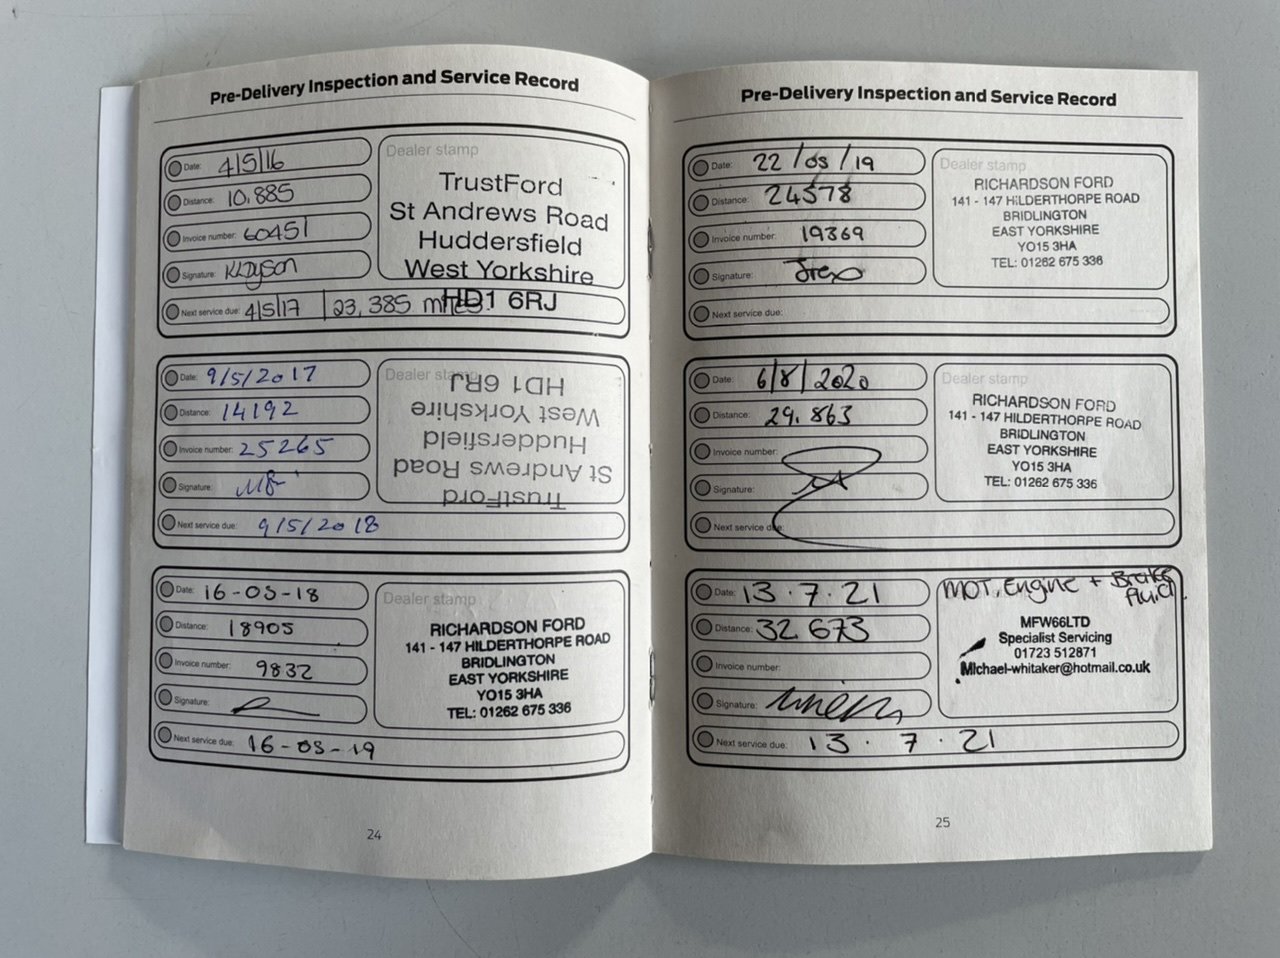 Pre-Delivery Inspection and Service Record
Date: 4/5/16
Distance: 10,885
Invoice number: 60451
Signature: KLDyson
Next service due: 4/5/17 | 23,385 miles
Dealer stamp
TrustFord
St Andrews Road
Huddersfield
West Yorkshire
HD1 6RJ
Date: 9/5/2017
Distance: 14192
Invoice number: 25265
Signature:
Next service due: 9/5/2018
Dealer stamp
TrustFord
St Andrews Road
Huddersfield
West Yorkshire
HD1 6RJ
Date: 16-05-18
Distance: 18905
Invoice number: 9832
Signature:
Next service due: 16-05-19
Dealer stamp
RICHARDSON FORD
141 - 147 HILDERTHORPE ROAD
BRIDLINGTON
EAST YORKSHIRE
YO15 3HA
TEL: 01262 675 336
24
Pre-Delivery Inspection and Service Record
Date: 22/05/19
Distance: 24578
Invoice number: 19369
Signature:
Next service due:
Dealer stamp
RICHARDSON FORD
141 - 147 HILDERTHORPE ROAD
BRIDLINGTON
EAST YORKSHIRE
YO15 3HA
TEL: 01262 675 336
Date: 6/8/2020
Distance: 29.863
Invoice number:
Signature:
Next service due:
Dealer stamp
RICHARDSON FORD
141 - 147 HILDERTHORPE ROAD
BRIDLINGTON
EAST YORKSHIRE
YO15 3HA
TEL: 01262 675 336
Date: 13.7.21
Distance: 32673
Invoice number:
Signature:
Next service due: 13.7.21
MOT, Engine + Brake
Fluid.
MFW66LTD
Specialist Servicing
01723 512871
Michael-whitaker@hotmail.co.uk
25